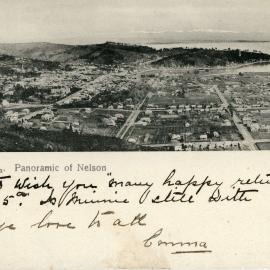 Panoramic of Nelson
Wish you "many happy
5th" Is Minnie still with
love to all
Emma